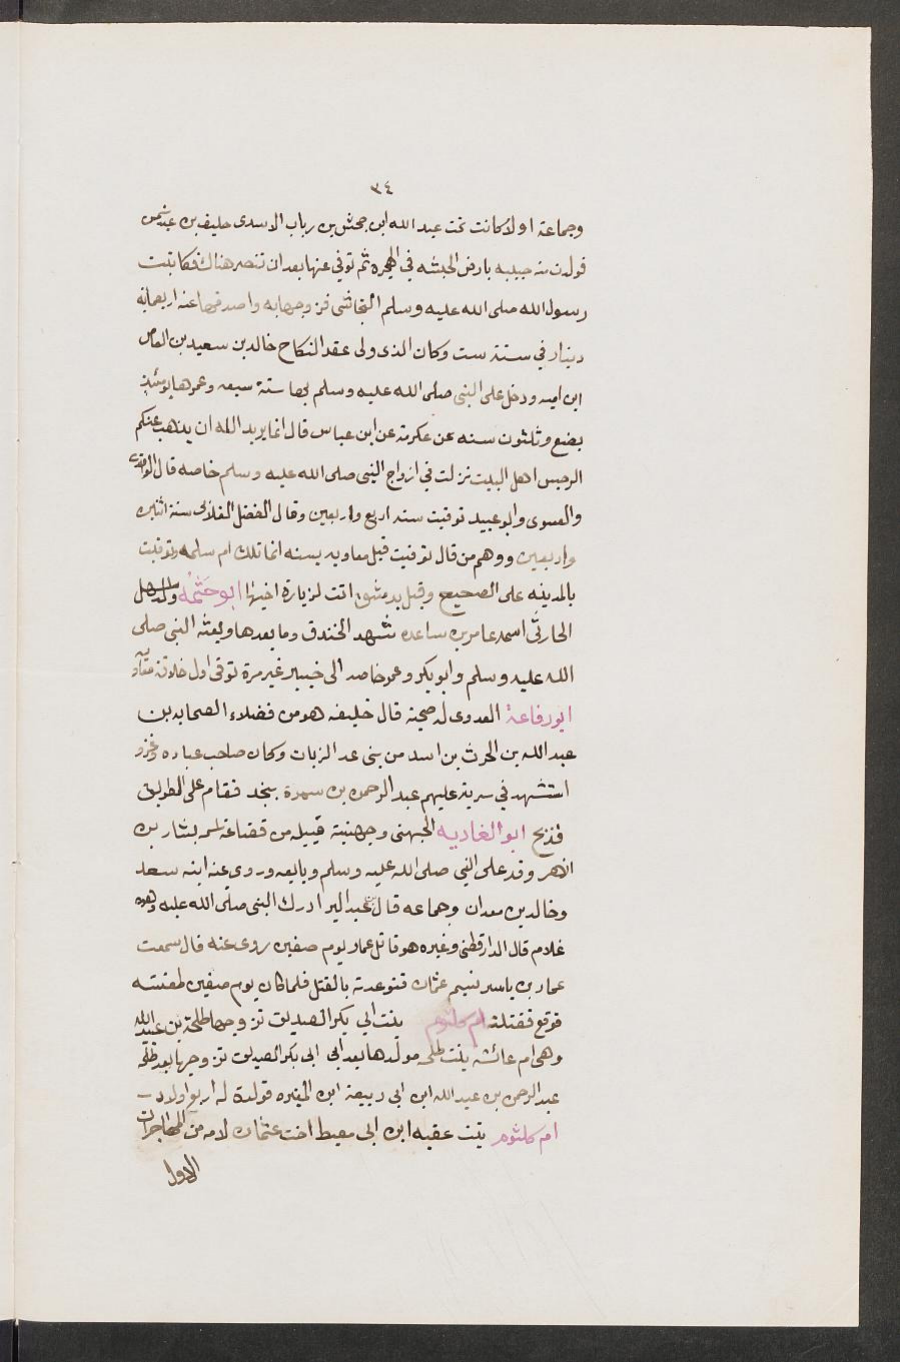 ٣٤
وجماعة اولا كانت تحت عبد الله ابن جحش بن رباب الاسدى حليف بن عبد شمس
فولدت منه حبيبه بارض الحبشه في الهجره ثم توفي عنها بعد ان تنصر هناك فكاتبت
رسول الله صلى الله عليه وسلم النجاشى فزوجها به واصدقها عنه اربعماية
دينار في سنة ست وكان الذى ولى عقد النكاح خالد بن سعيد بن العاص
ابن اميه ودخل على النبى صلى الله عليه وسلم بها سنة سبعه وعمرها يومئذ
بضع وثلثون سنه عن عكرمة عن ابن عباس قال انما يريد الله ان يذهب عنكم
الرجس اهل البيت نزلت في ازواج النبى صلى الله عليه وسلم خاصه قال الواقدى
والفسوى وابو عبيد توفيت سنه اربع واربعين وقال المفضل الغلابى سنة اثنين
واربعين ووهم من قال توفيت قبل معاويه بسنه انما تلك ام سلمه وتوفيت
بالمدينه على الصحيح وقيل بدمشق اتت لزيارة اخيها ابو حثمه والد سهل
الحارثى اسمه عامر بن ساعده شهد الخندق وما بعدها وبعثه النبى صلى
الله عليه وسلم وابو بكر وعمر خاصه الى خيبر غير مرة توفى اول خلافة معاو
ابو رفاعة العدوى له صحبة قال خليفه هو من فضلاء الصحابه بن
عبد الله بن الحرث بن اسد من بنى عد الزبات وكان صاحب عباده وغزو
استشهد في سرية عليهم عبد الرحمن بن سمرة فقام على الطريق
فذبح ابو الغاديه الجهنى وجهنية قبيله من قضاعة اسمه بشار بن
ازهر وفد على النبي صلى الله عليه وسلم وبايعه وروى عنه ابنه سعد
وخالد بن معدان وجماعه قال ابن عبد البر ادرك النبى صلى الله عليه وهو
غلام قال الدارقطنى وغيره هو قاتل عمار يوم صفين روى عنه قال سمعت
عمار بن ياسر يشتم عثمان فتوعدته بالقتل فلما كان يوم صفين طعنته
فوقع فقتلته ام كلثوم بنت ابي بكر الصديق تزوجها طلحة بن عبيد الله
وهى ام عائشه بنت طلحه مولدها بعد ابى بكر الصديق تزوجها بعد طلحه
عبد الرحمن بن عبد الله ابن ابى ربيعة ابن المغيره فولدة له اربع اولاد
ام كلثوم بنت عقبه ابن ابى معيط اخت عثمان لامه من المهاجرات
الاول